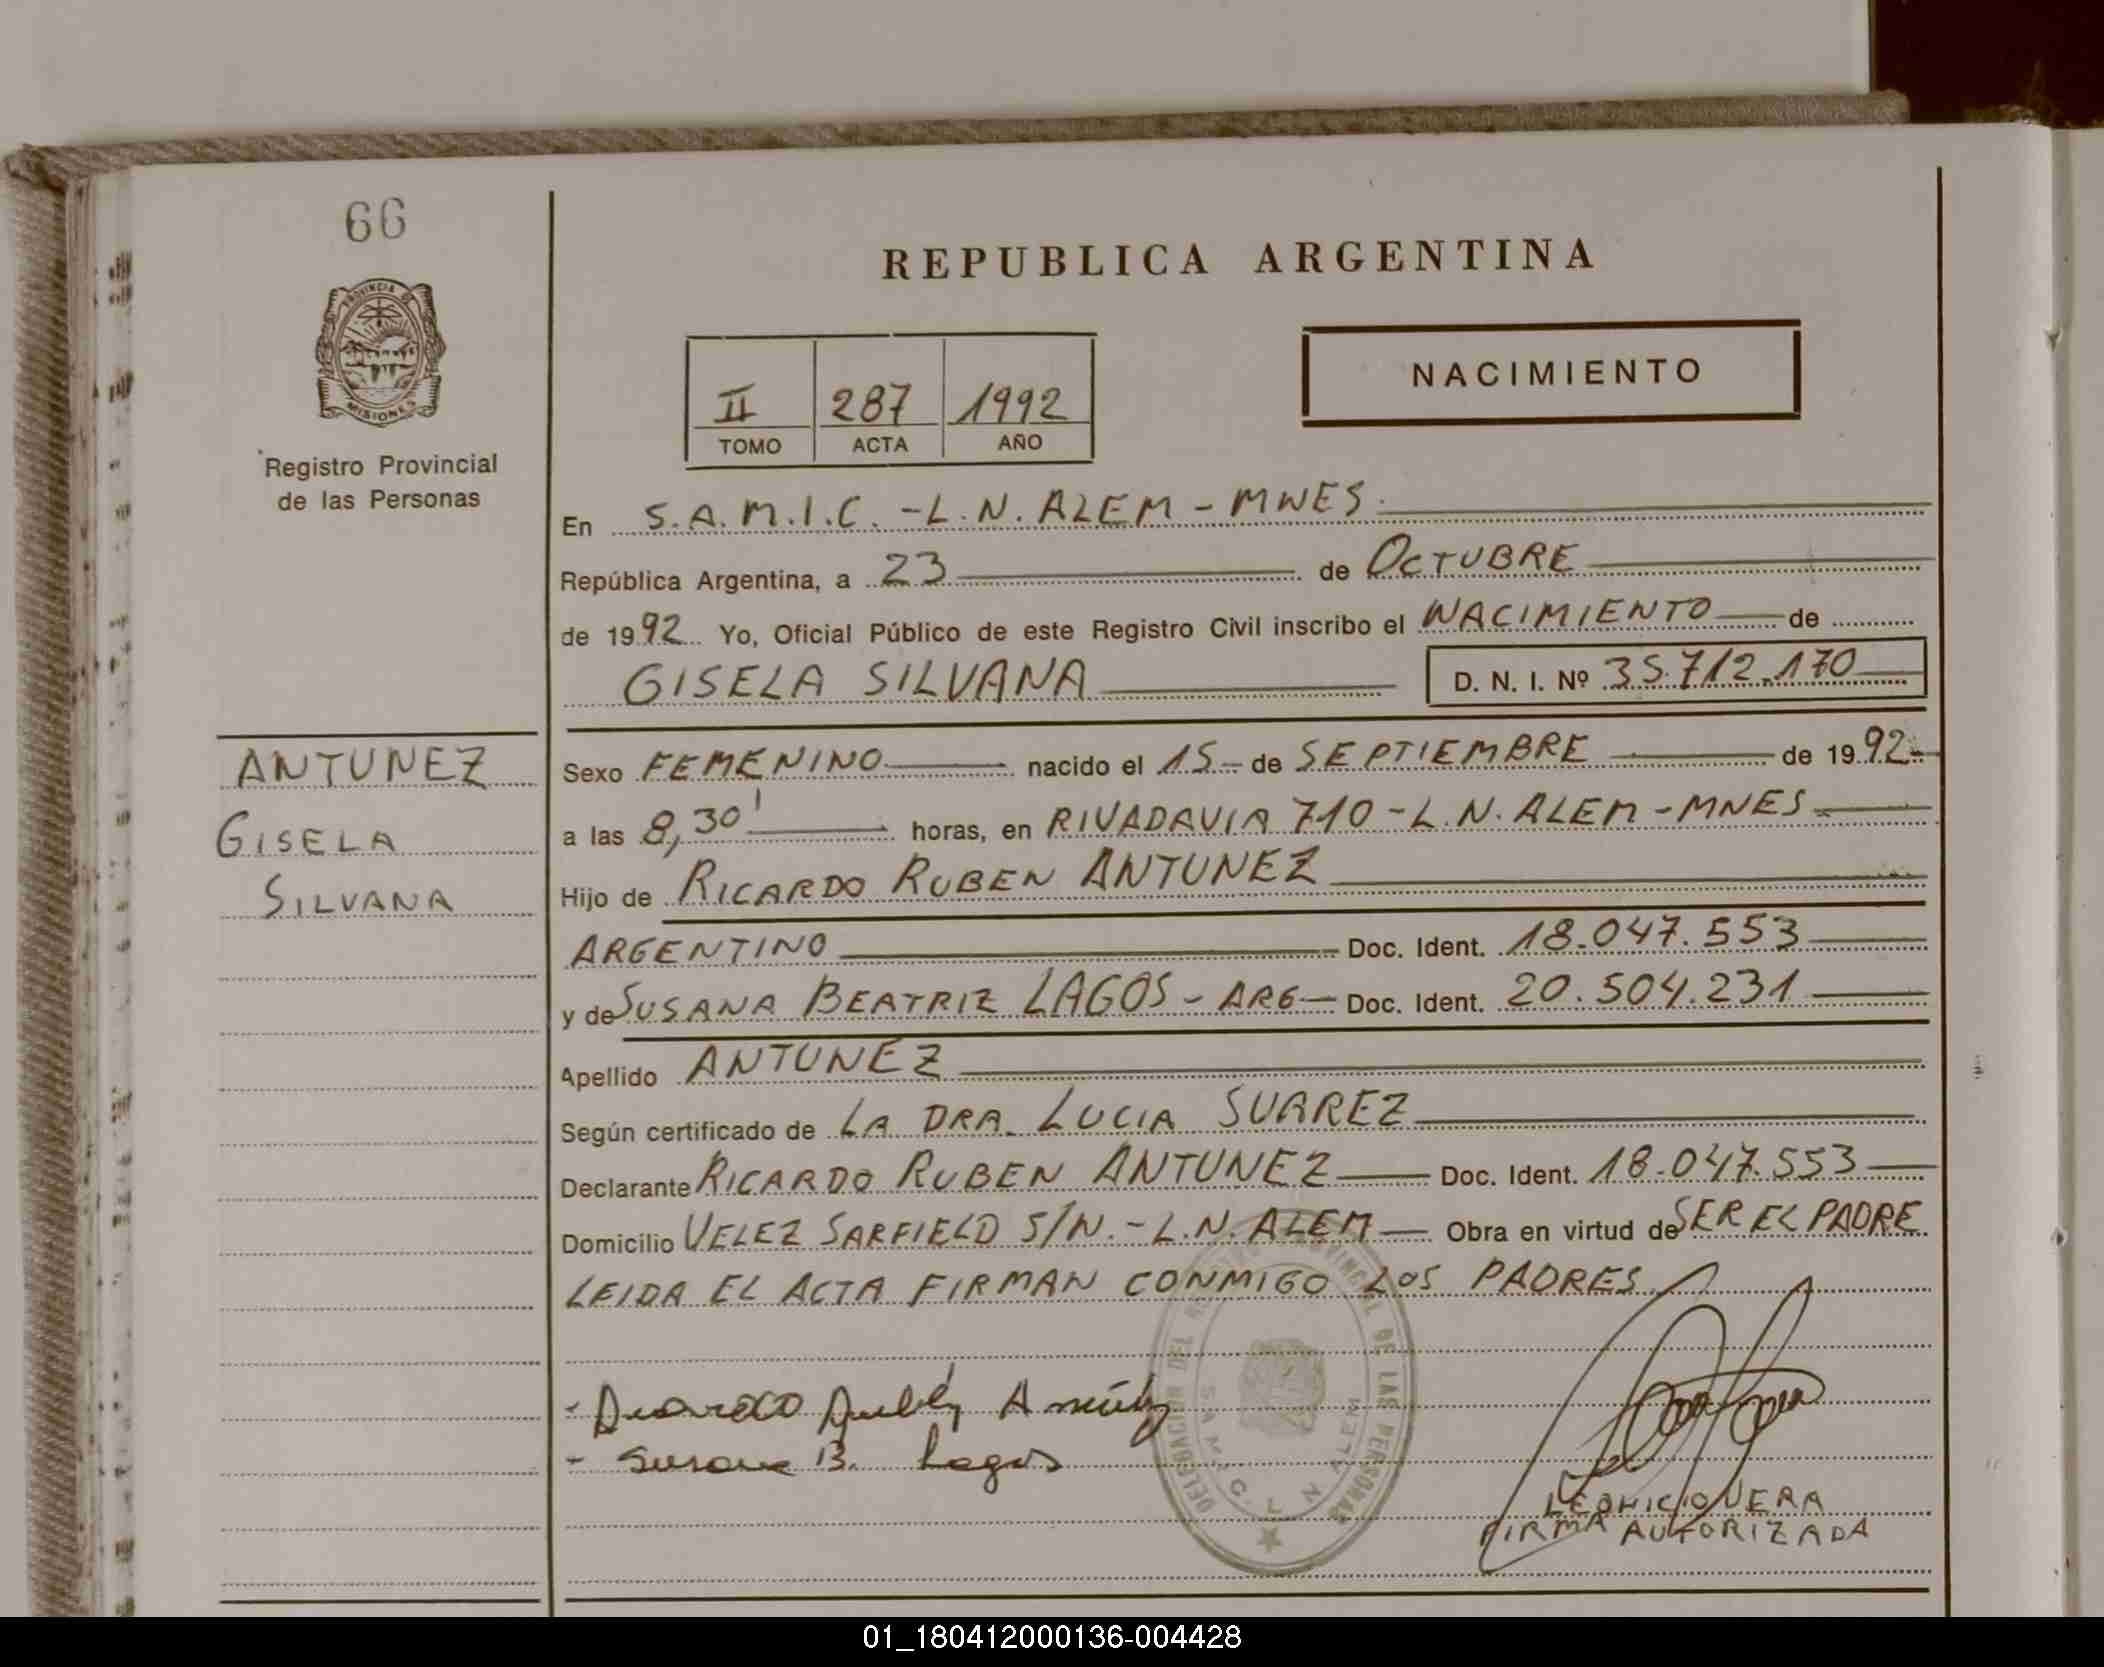 66
REPUBLICA ARGENTINA
PROVINCIA DE
MISIONES
Registro Provincial
de las Personas
II 287 1992
TOMO ACTA AÑO
NACIMIENTO
En S.A.M.I.C. - L.N. ALEM - MNES.
República Argentina, a 23 de OCTUBRE
de 1992 Yo, Oficial Público de este Registro Civil inscribo el NACIMIENTO de
GISELA SILVANA D. N. I. Nº 35.712.170
ANTUNEZ
GISELA
SILVANA
Sexo FEMENINO nacido el 15 de SEPTIEMBRE de 1992
a las 8,30' horas, en RIVADAVIA 710 - L.N. ALEM - MNES
Hijo de RICARDO RUBEN ANTUNEZ
ARGENTINO Doc. Ident. 18.047.553
y de SUSANA BEATRIZ LAGOS - ARG Doc. Ident. 20.504.231
Apellido ANTUNEZ
Según certificado de LA DRA. LUCIA SUAREZ
Declarante RICARDO RUBEN ANTUNEZ Doc. Ident. 18.047.553
Domicilio VELEZ SARFIELD S/N. - L.N. ALEM Obra en virtud de SER EL PADRE
LEIDA EL ACTA FIRMAN CONMIGO LOS PADRES
DELEGACION DEL REGISTRO PROVINCIAL DE LAS PERSONAS
S A M I C. L N ALEM
- Susana B. Lagos
LEONICIO VERA
FIRMA AUTORIZADA
01_180412000136-004428